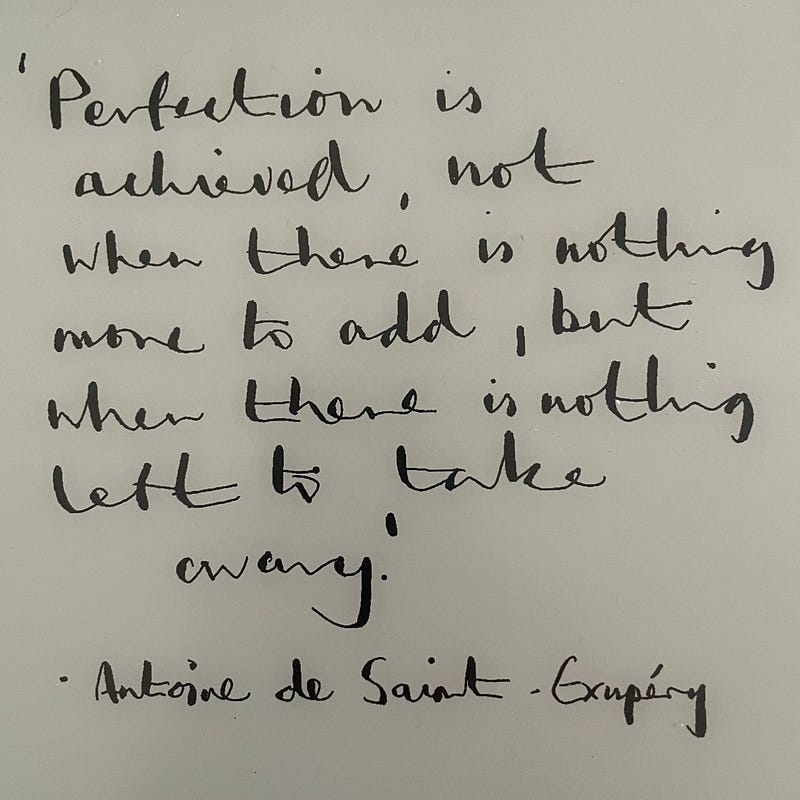 'Perfection is
achieved, not
when there is nothing
more to add, but
when there is nothing
left to take
away.'
· Antoine de Saint-Exupéry